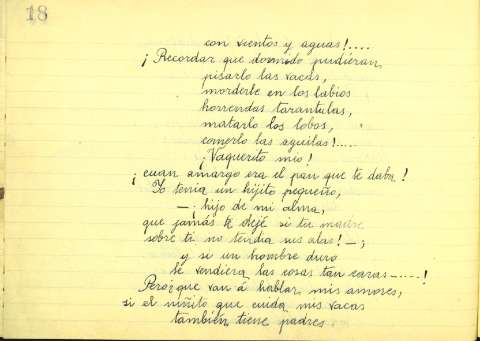 18
con vientos y aguas!....
¡Recordar que dormido pudieran
pisarlo las vacas,
morderle en los labios
horrendas tarantulas,
matarlo los lobos,
comerlo las aguilas!....
¡Vaquerito mio!
¡cuan amargo era el pan que te daba!
Yo tenia un hijito pequeño,
—¡hijo de mi alma,
que jamás te dejé si tu madre
sobre ti no tendia sus alas!—;
y si un hombre duro
le vendiera las cosas tan caras—....!
Pero ¿que van á hablar mis amores,
si el niñito que cuida mis vacas
también tiene padres